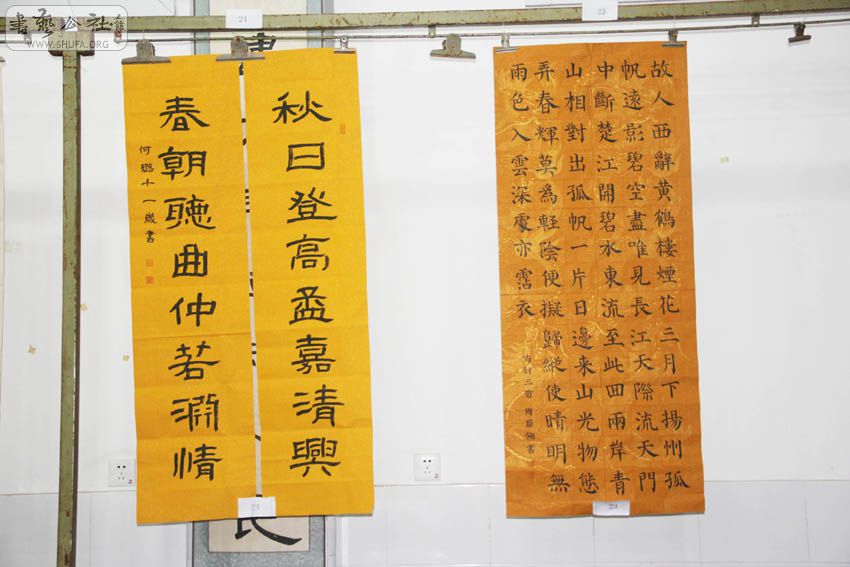 書藝公社
WWW.SHUFA.ORG
24
23
故人西辭黃鶴樓煙花三月下揚州孤
帆遠影碧空盡唯見長江天際流天門
中斷楚江開碧水東流至此回兩岸青
山相對出孤帆一片日邊來山光物態
弄春輝莫為輕陰便擬歸縱使晴明無
雨色入雲深處亦霑衣
古詩三首
秋日登高孟嘉清興
春朝聽曲仲若淵情
何璐十一歲書
24
23